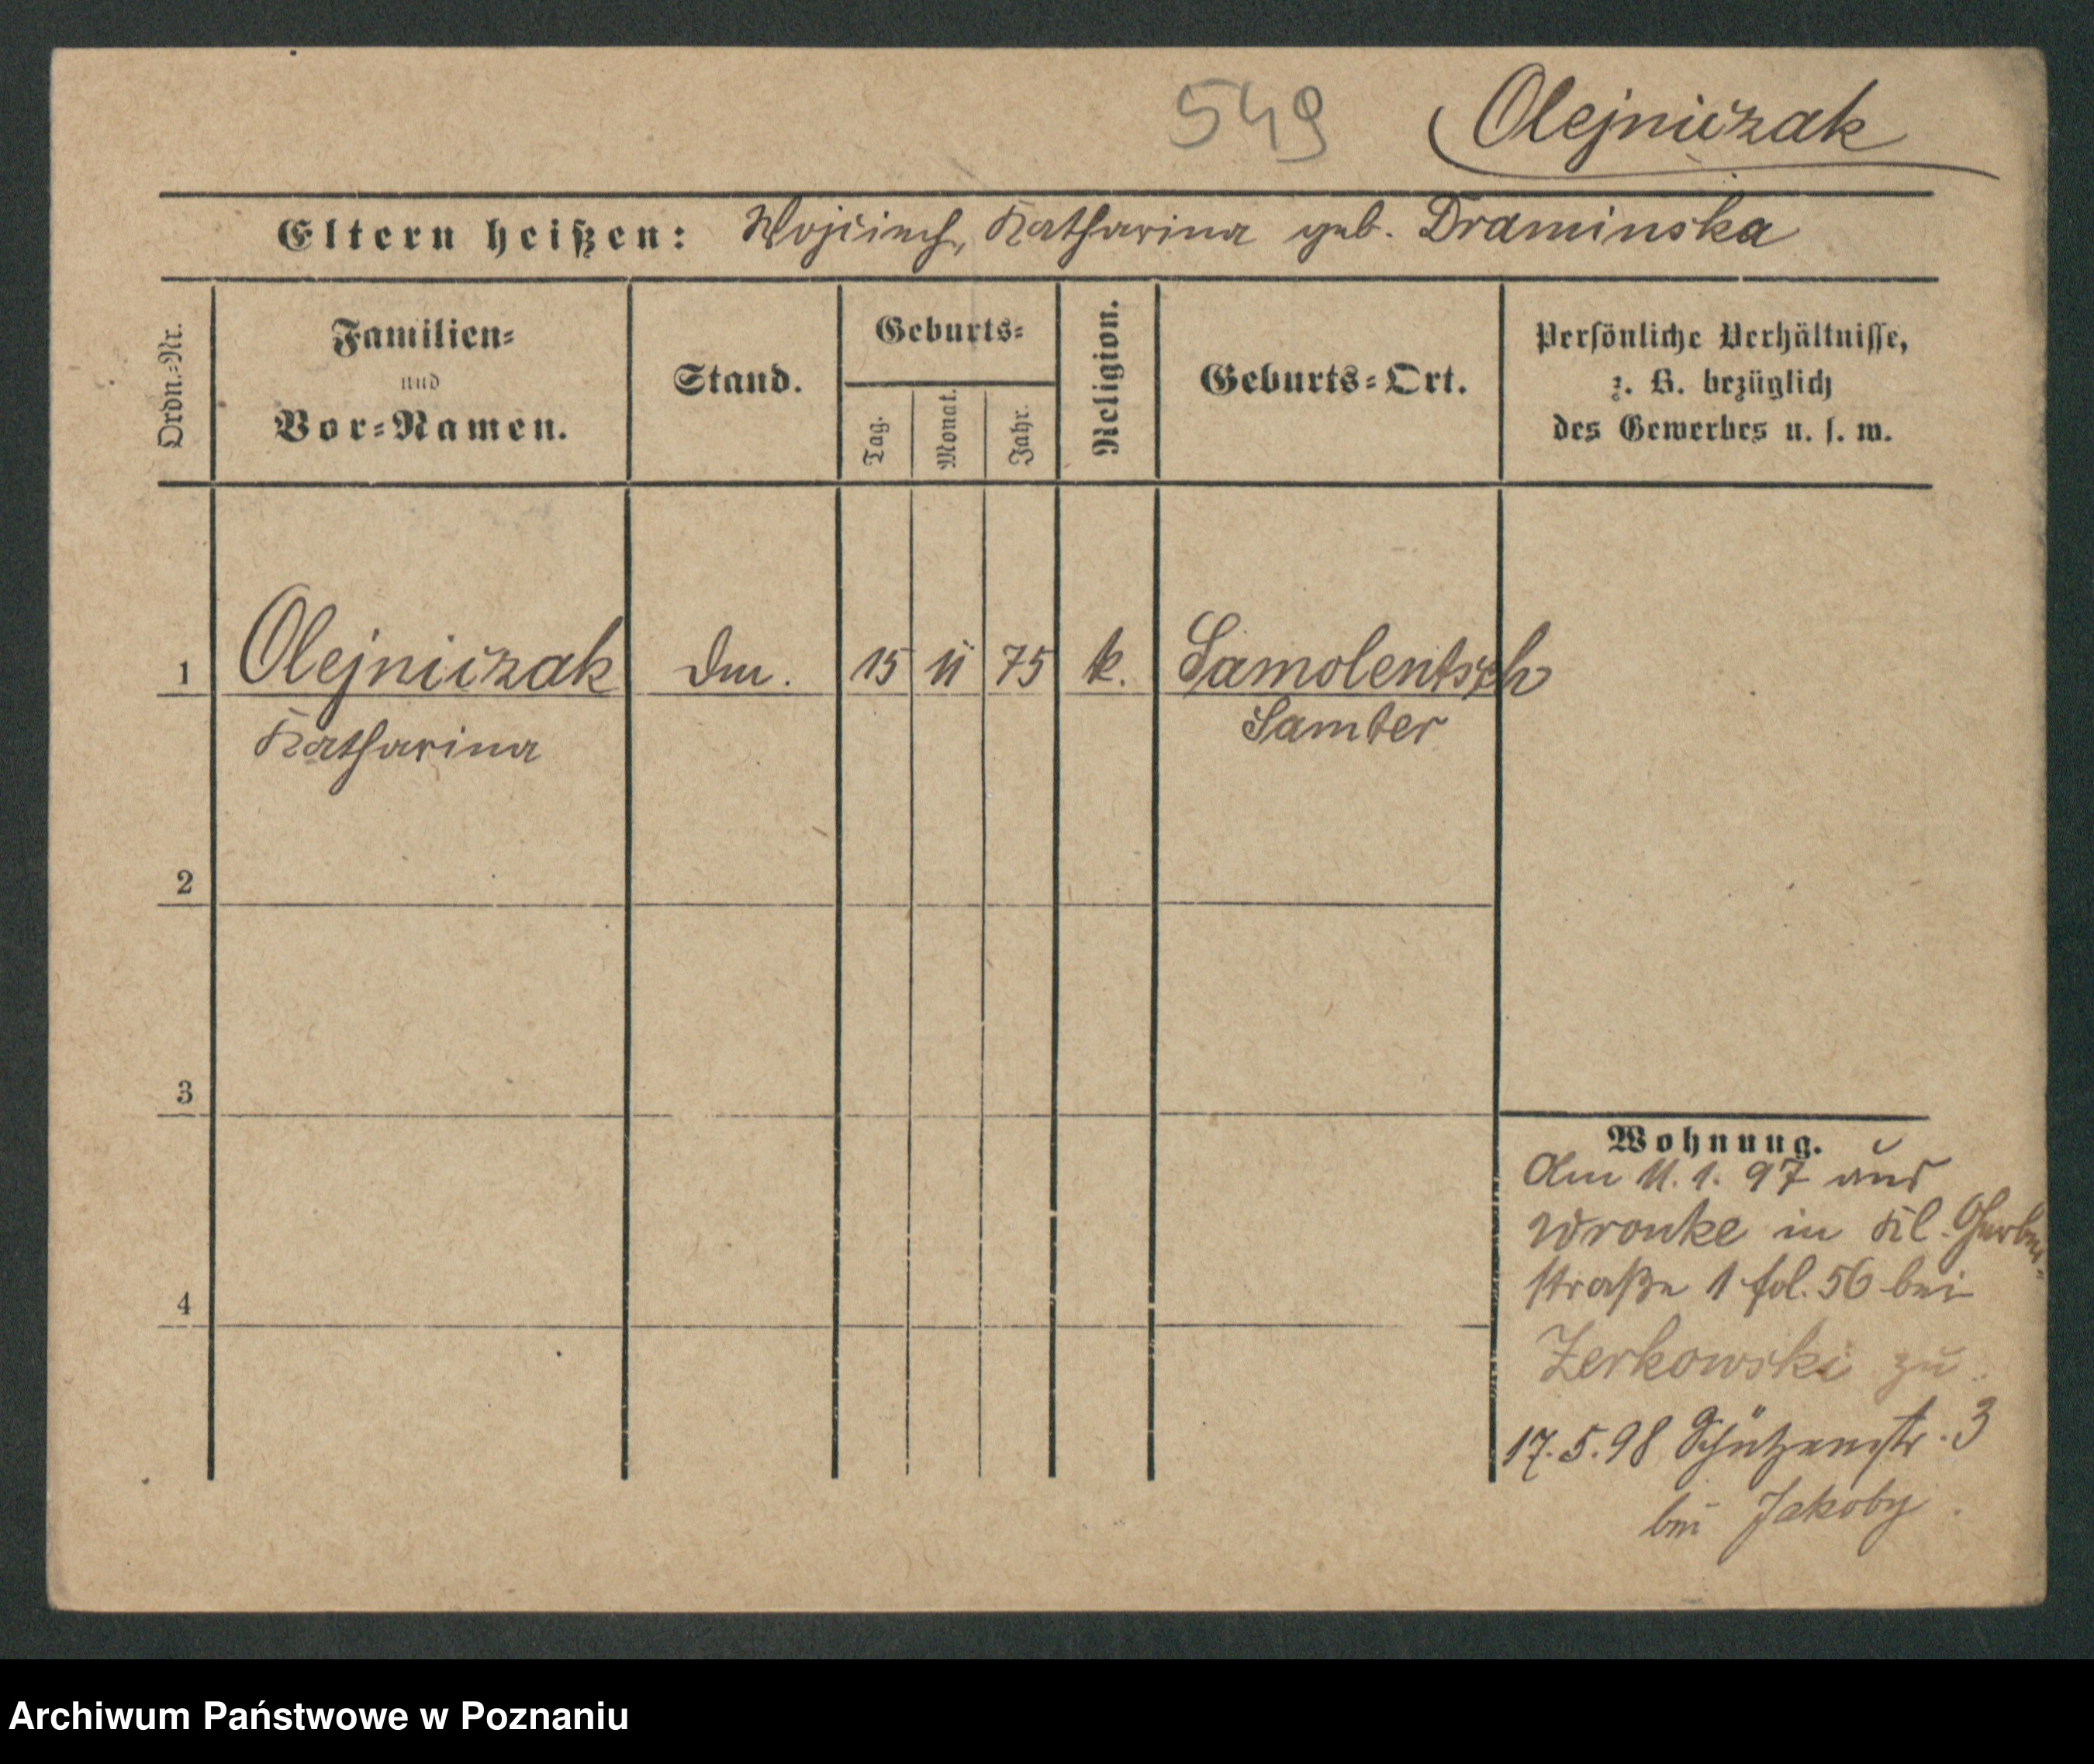 549 Olejniczak
Eltern heißen: Wojciech, Katharina geb. Draminska
Ordn.-Nr.
Familien-
und
Vor-Namen.
Stand.
Geburts-
Tag.
Monat.
Jahr.
Religion.
Geburts-Ort.
Persönliche Verhältnisse,
z. B. bezüglich
des Gewerbes u. s. w.
1 Olejniczak Dm. 15 11 75 k. Samolentsch
Katharina Samter
2
3
4
Wohnung.
Am 11.1.97 aus
Wronke in Kl. Gerber-
straße 1 fol. 56 bei
Zerkowski zu
17.5.98 Schützenstr. 3
bei Jakoby
Archiwum Państwowe w Poznaniu